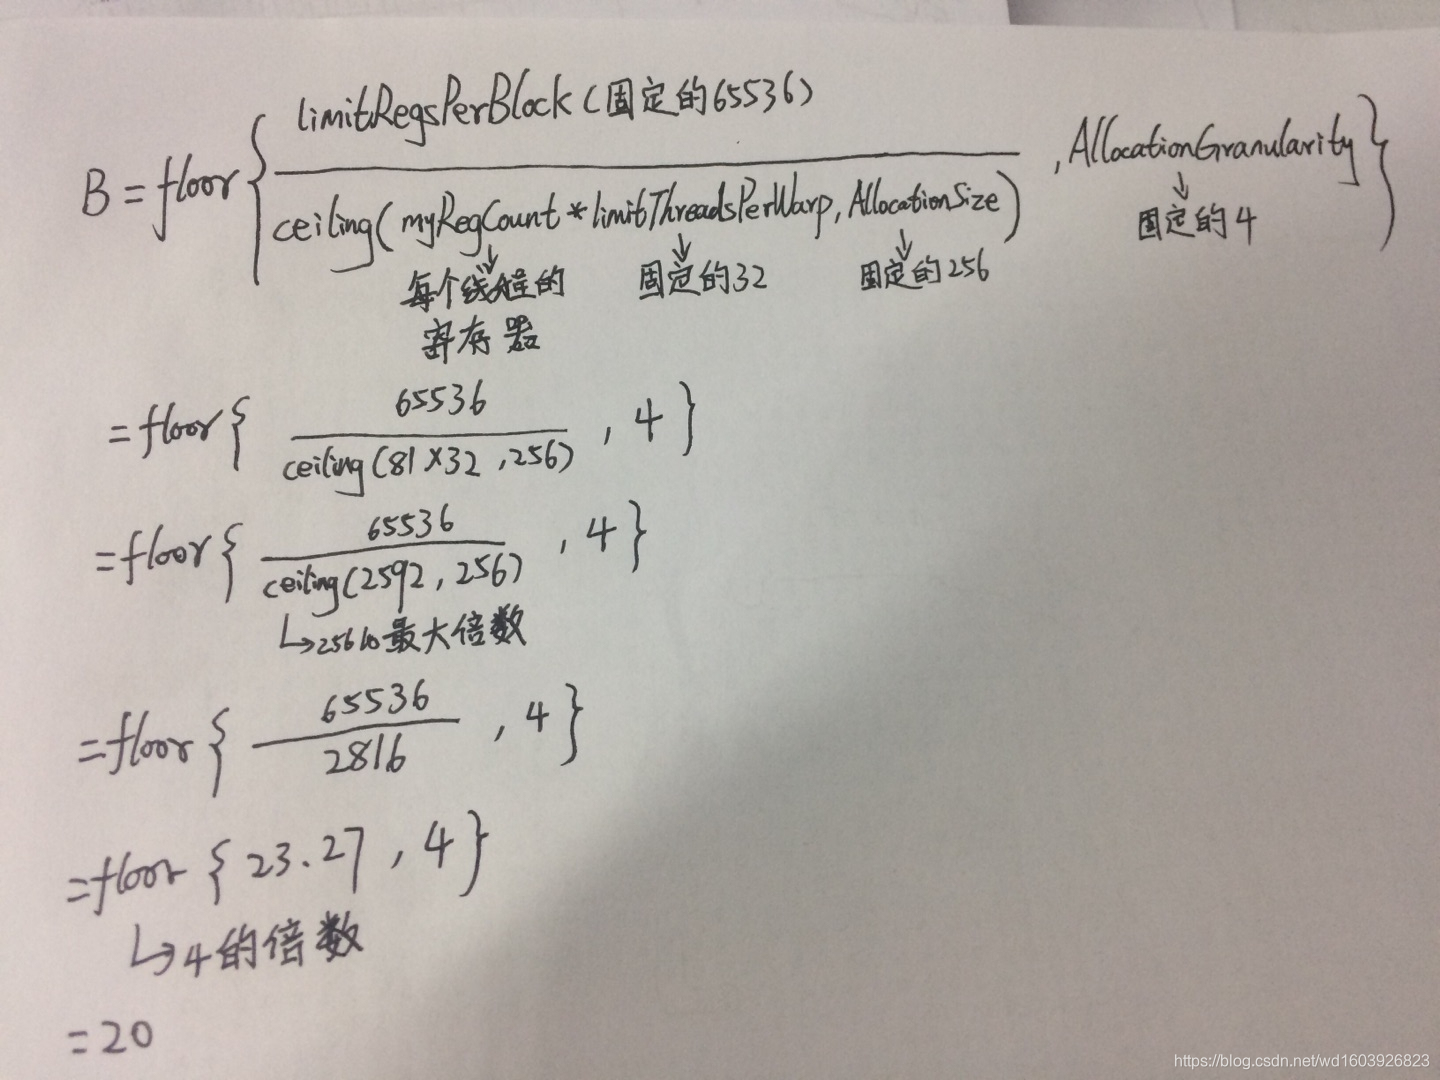 limitRegsPerBlock (固定的65536)
B = floor { ———— , AllocationGranularity }
ceiling( myRegCount * limitThreadsPerWarp, AllocationSize )
↓ 每个线程的 ↓ 固定的32 ↓ 固定的256 ↓ 固定的4
寄存器
65536
= floor { ———— , 4 }
ceiling(81×32 ,256)
65536
= floor { ———— , 4 }
ceiling(2592, 256)
↳ 256的最大倍数
65536
= floor { ———— , 4 }
2816
= floor { 23.27 , 4 }
↳ 4的倍数
= 20
https://blog.csdn.net/wd1603926823